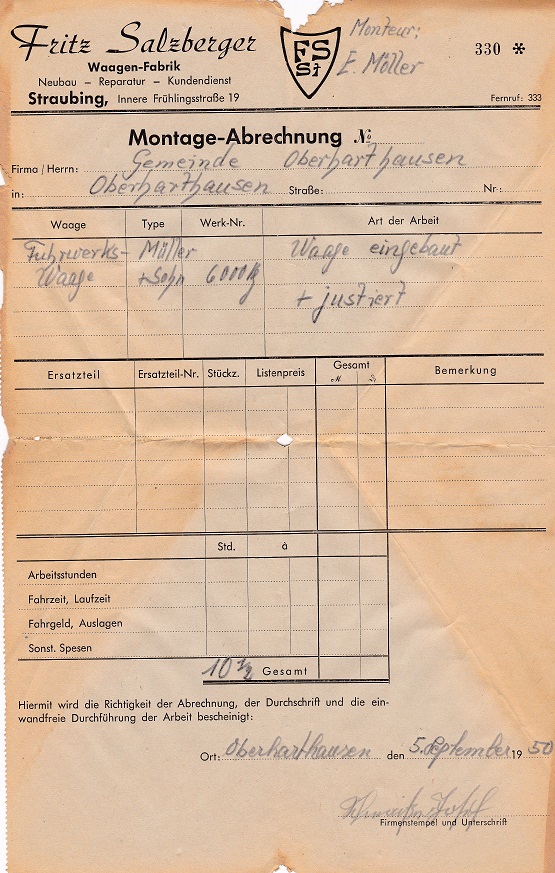 Fritz Salzberger
Waagen-Fabrik
Neubau – Reparatur – Kundendienst
Straubing, Innere Frühlingsstraße 19
FS
St
Monteur:
E. Möller
330 *
Fernruf: 333
Montage-Abrechnung No
Firma / Herrn: Gemeinde Oberharthausen
in: Oberharthausen Straße: Nr.:
Waage Type Werk-Nr. Art der Arbeit
Fuhrwerks- Müller Waage eingebaut
Waage + Sohn 6000 kg
+ justiert
Ersatzteil Ersatzteil-Nr. Stückz. Listenpreis Gesamt Bemerkung
Std. à
Arbeitsstunden
Fahrzeit, Laufzeit
Fahrgeld, Auslagen
Sonst. Spesen
10 1/2 Gesamt
Hiermit wird die Richtigkeit der Abrechnung, der Durchschrift und die ein-
wandfreie Durchführung der Arbeit bescheinigt:
Ort: Oberharthausen den 5. September 19 50
Josef
Firmenstempel und Unterschrift